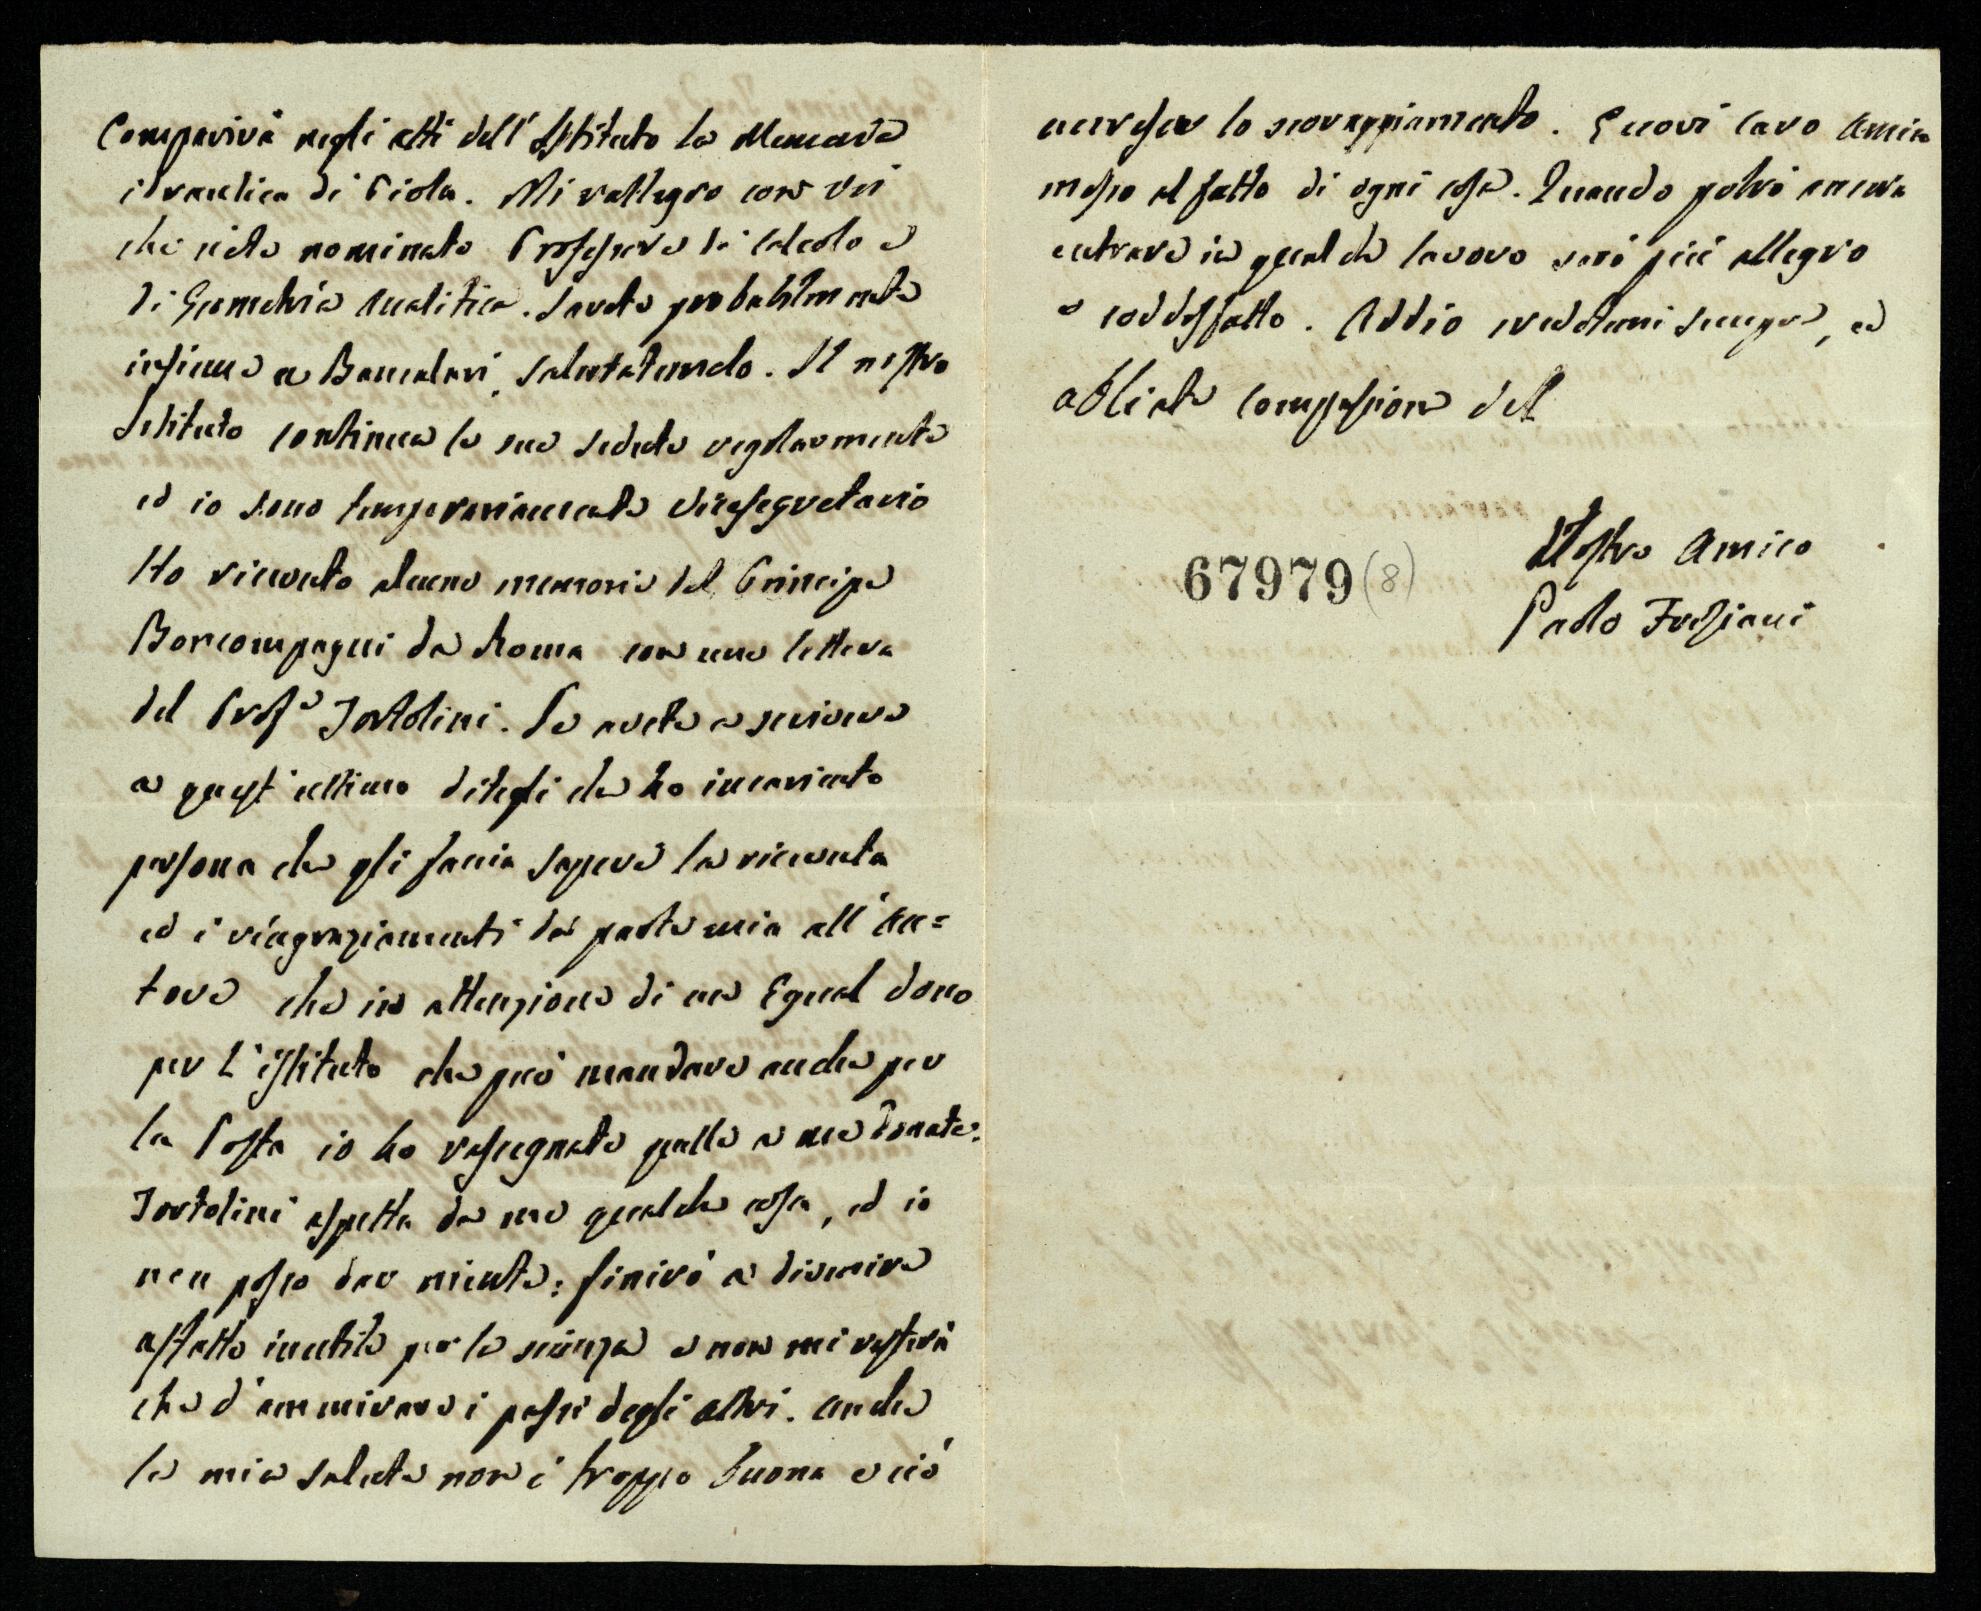 Comparirà negli atti dell'Istituto la Memoria
idraulica di Piola. Mi rallegro con voi
che siete nominato Professore di Calcolo e
di Geometria Analitica. Sarete probabilmente
insieme a Bancalari, salutatemelo. Il nostro
Istituto continua le sue sedute regolarmente
ed io sono temporariamente vicesegretario
Ho ricevuto alcune memorie del Principe
Boncompagni da Roma con una lettera
del Profe Tortolini. Se avete a scrivere
a quest'ultimo ditegli che ho incaricato
persona che gli faccia sapere la ricevuta
ed i ringraziamenti da parte mia all'Au=
tore che in attenzione di un Egual dono
per l'istituto che può mandare anche per
la Posta io ho rassegnato quelle a me donate.
Tortolini aspetta da me qualche cosa, ed io
non posso dar niente: finirò a divenire
affatto inutile per la scienza e non mi resterà
che d'ammirare i passi degli altri. Anche
la mia salute non è troppo buona e ciò
accresce lo scoraggiamento. Eccovi caro Amico
messo al fatto di ogni cosa. Quando potrò ancora
entrare in qualche lavoro sarò più allegro
e soddisfatto. Addio credetemi sempre, ed
abbiate compassione del
Vostro Amico
67979 (8)
Paolo Frisiani